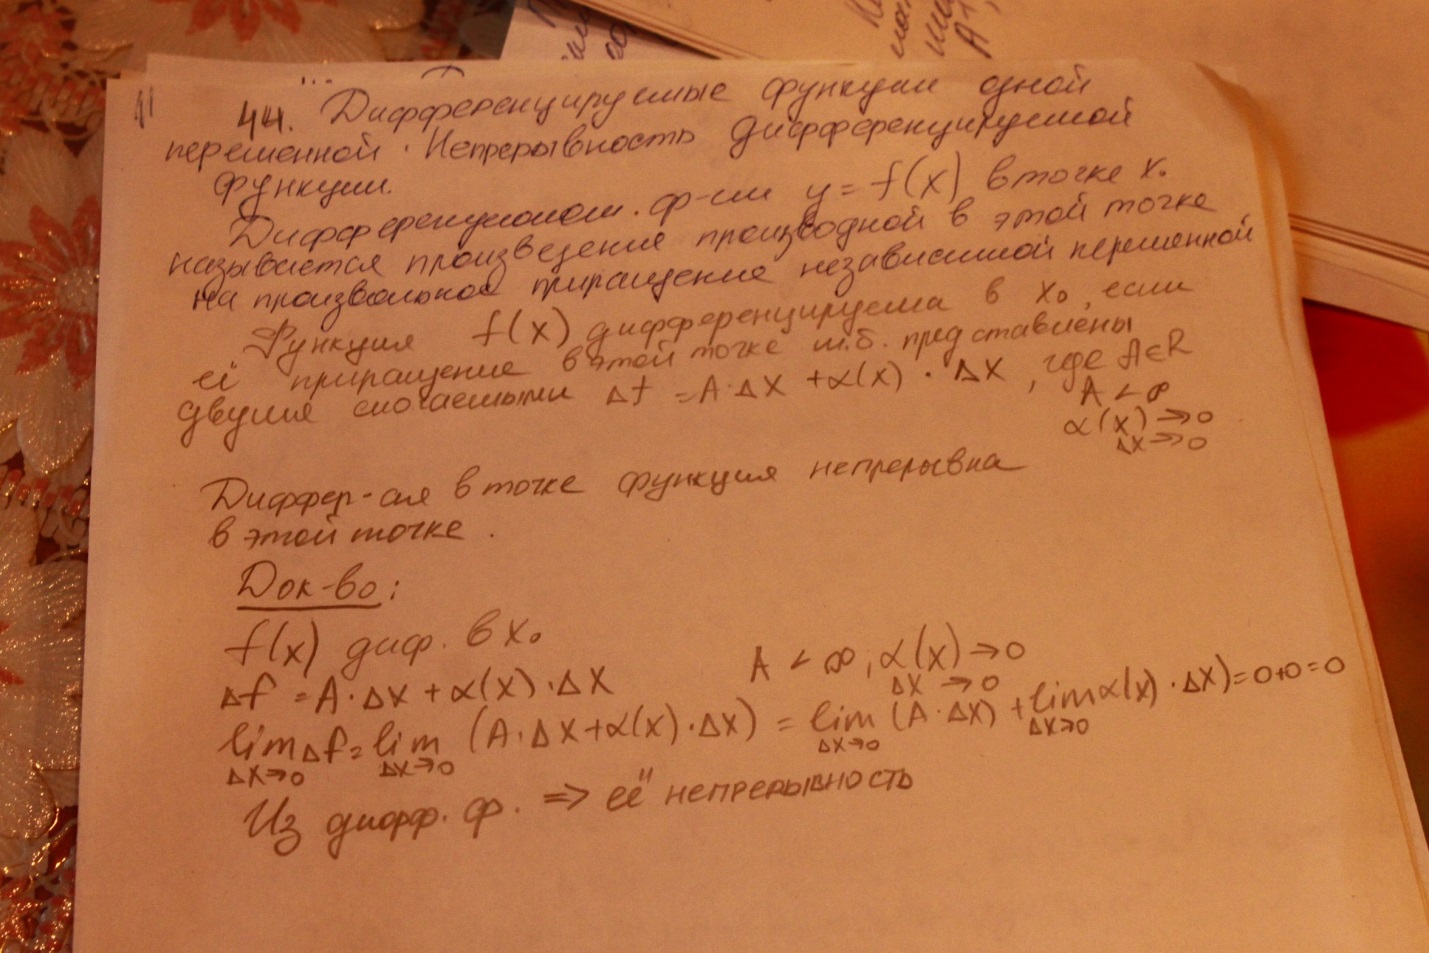 44. Дифференцируемые функции одной
переменной. Непрерывность дифференцируемой
функции.
Дифференциалом. ф-ии y = f(x) в точке x₀
называется произведение производной в этой точке
на произвольное приращение независимой переменной
Функция f(x) дифференцируема в x₀, если
её приращение в этой точке м.б. представлены
двумя слогаемыми Δf = A·Δx + α(x)·Δx, где A∈R
A < ∞
α(x) → 0
Δx → 0
Диффер-ая в точке функция непрерывна
в этой точке.
Док-во:
f(x) диф. в x₀
Δf = A·Δx + α(x)·Δx A < ∞, α(x) → 0
Δx → 0
lim Δf = lim (A·Δx + α(x)·Δx) = lim (A·Δx) + lim α(x)·Δx) = 0+0=0
Δx→0 Δx→0 Δx→0 Δx→0
Из дифф. ф. => её непрерывность